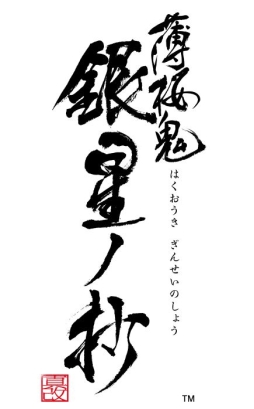 薄桜鬼
銀星ノ抄
はくおうき ぎんせいのしょう
TM